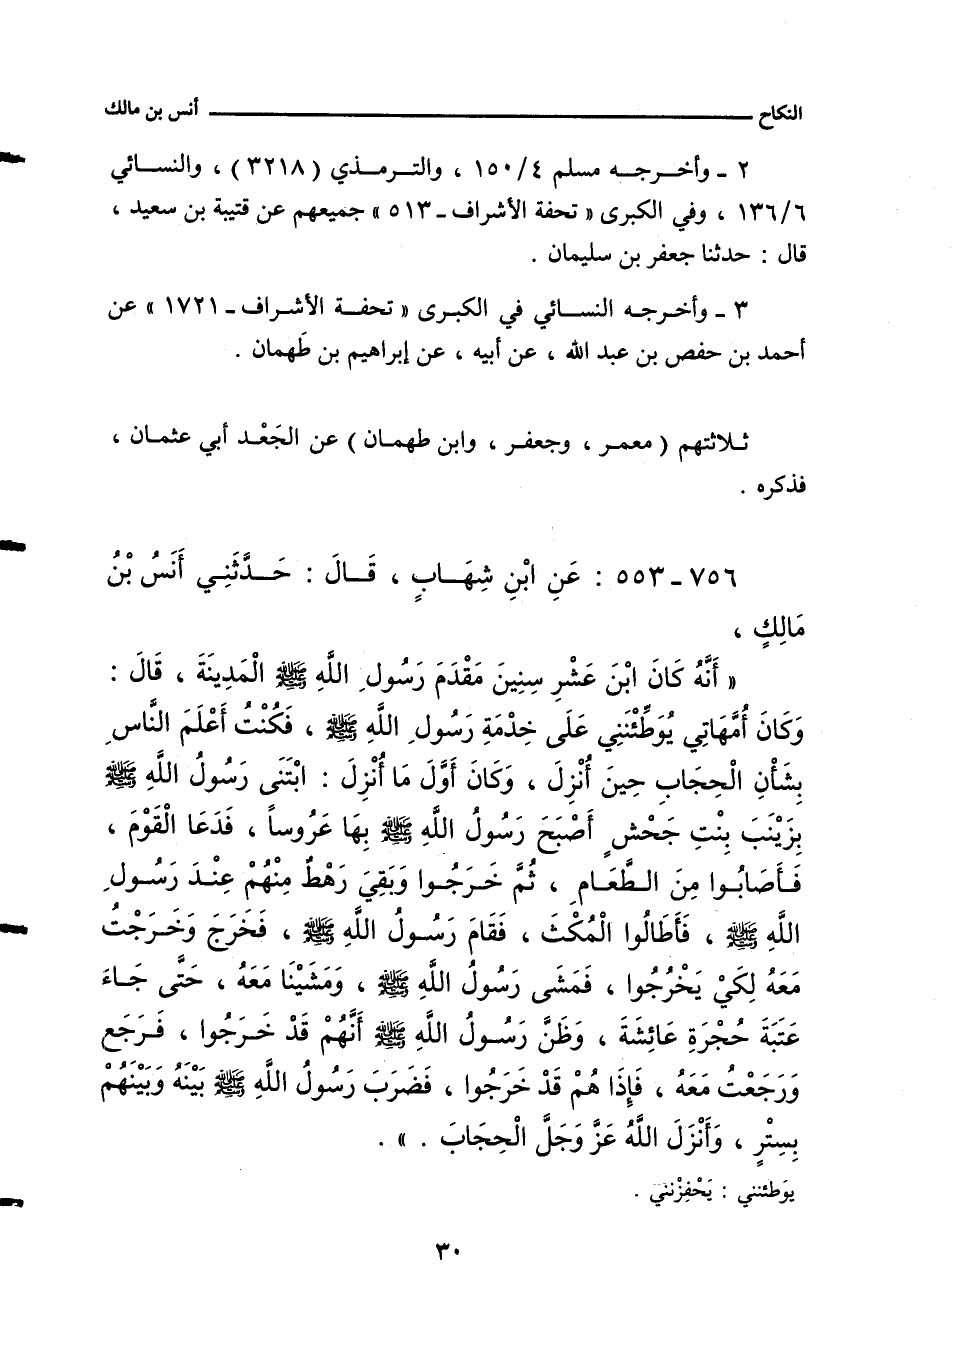 النكاح ــــــــــــــــــــ أنس بن مالك
٢ ـ وأخـرجـه مسلم ١٥٠/٤ ، والتـرمـذي ( ٣٢١٨ ) ، والنسـائي
١٣٦/٦ ، وفي الكبرى « تحفة الأشراف ـ ٥١٣ » جميعهم عن قتيبة بن سعيد ،
قال : حدثنا جعفر بن سليمان .
٣ ـ وأخـرجـه النسـائي في الكبرى « تحفـة الأشـراف ـ ١٧٢١ » عن
أحمد بن حفص بن عبد الله ، عن أبيه ، عن إبراهيم بن طَهمان .
ثـلاثتهم ( معمـر ، وجعفـر ، وابن طهمـان ) عن الجَعْـد أبي عثمـان ،
فذكره .
٧٥٦ ـ ٥٥٣ : عَنِ ابْنِ شِهَـابٍ ، قَـالَ : حَـدَّثَنِي أَنَسُ بْنُ
مَالِكٍ ،
« أَنَّهُ كَانَ ابْنَ عَشْرِ سِنِينَ مَقْدَمَ رَسُولِ اللَّهِ ﷺ الْمَدِينَةَ ، قَالَ :
وَكَانَ أُمَّهَاتِي يُوَطِّئْنَنِي عَلَى خِدْمَةِ رَسُولِ اللَّهِ ﷺ ، فَكُنْتُ أَعْلَمَ النَّاسِ
بِشَأْنِ الْحِجَابِ حِينَ أُنْزِلَ ، وَكَانَ أَوَّلَ مَا أُنْزِلَ : ابْتَنَى رَسُولُ اللَّهِ ﷺ
بِزَيْنَبَ بِنْتِ جَحْشٍ أَصْبَحَ رَسُولُ اللَّهِ ﷺ بِهَا عَرُوساً ، فَدَعَا الْقَوْمَ ،
فَـأَصَابُـوا مِنَ الـطَّعَـامِ ، ثُمَّ خَـرَجُـوا وَبَقِيَ رَهْطٌ مِنْهُمْ عِنْـدَ رَسُـولِ
اللَّهِ ﷺ ، فَأَطَالُوا الْمُكْثَ ، فَقَامَ رَسُـولُ اللَّهِ ﷺ ، فَخَرَجَ وَخَـرَجْتُ
مَعَهُ لِكَيْ يَخْرُجُوا ، فَمَشَى رَسُولُ اللَّهِ ﷺ ، وَمَشَيْنَا مَعَهُ ، حَتَّى جَـاءَ
عَتَبَةَ حُجْرَةِ عَائِشَةَ ، وَظَنَّ رَسُـولُ اللَّهِ ﷺ أَنَّهُمْ قَدْ خَـرَجُوا ، فَـرَجَع
وَرَجَعْتُ مَعَهُ ، فَإِذَا هُمْ قَدْ خَرَجُوا ، فَضَرَبَ رَسُولُ اللَّهِ ﷺ بَيْنَهُ وَبَيْنَهُمْ
بِسِتْرٍ ، وَأَنْزَلَ اللَّهُ عَزَّ وَجَلَّ الْحِجَابَ . » .
يوَطئنني : يَحْفِزْنَنِي .
٣٠